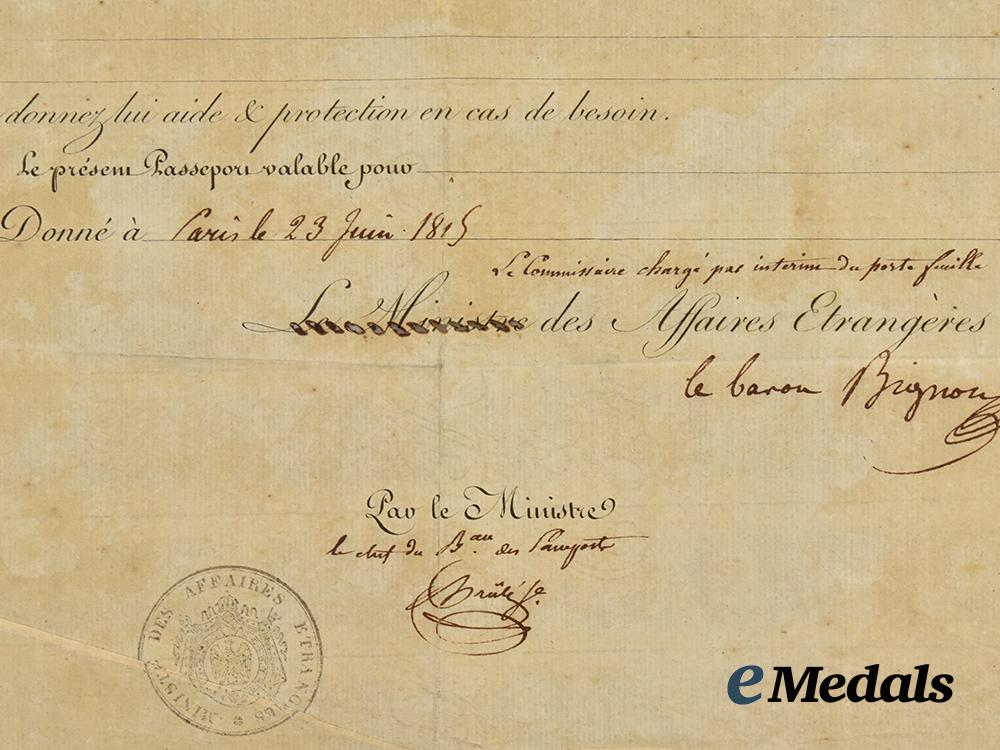 donnez lui aide & protection en cas de besoin.
Le présent Passeport valable pour
Donné à Paris le 23 Juin 1815
Le Commissaire chargé par interim du porte feuille
Le Ministre des Affaires Etrangères
le baron Bignon
Par le Ministre
le chef du B.au des Passeports
Brulé
MINISTE DES AFFAIRES ETRANGERES
eMedals